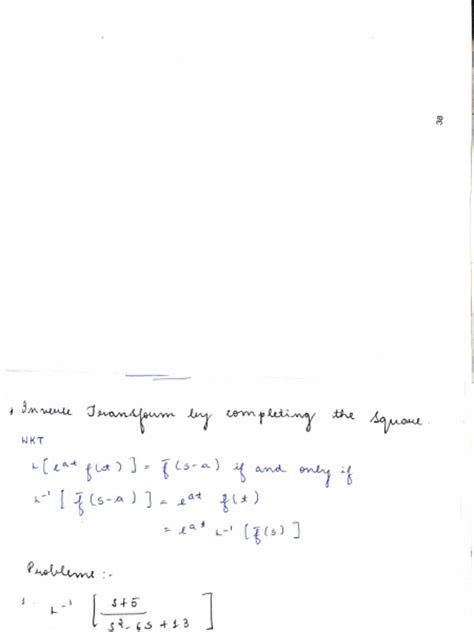 38
Inverse Transform by completing the square.
WKT
L[e^{at} f(t)] = f̄(s-a) if and only if
L^{-1}[f̄(s-a)] = e^{at} f(t)
= e^{at} L^{-1}[f̄(s)]
Problems :-
1. L^{-1} [ s+5 / s^2-6s+13 ]